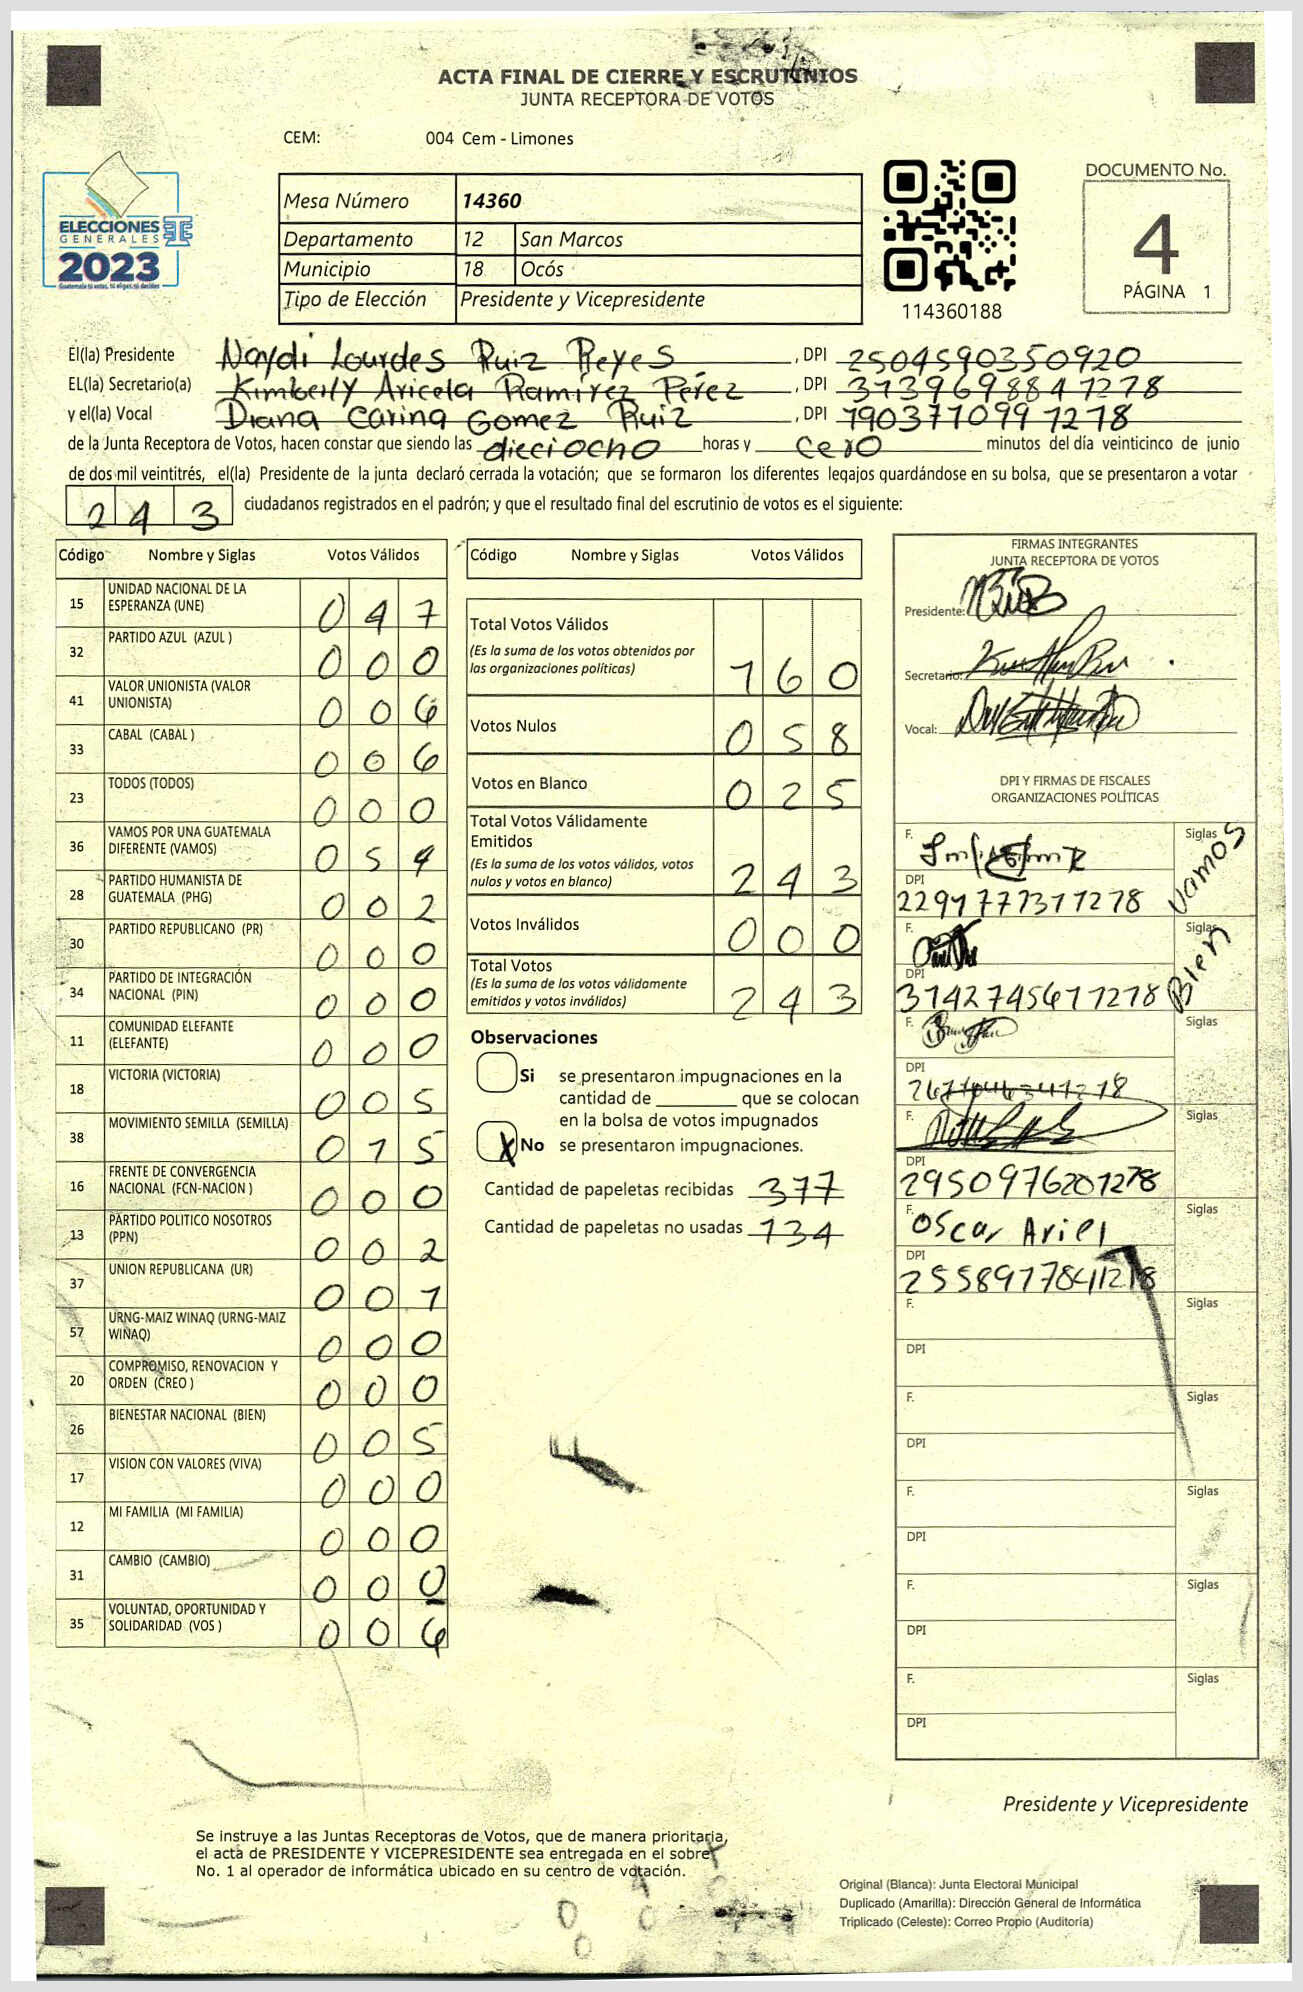 ACTA FINAL DE CIERRE Y ESCRUTINIOS
JUNTA RECEPTORA DE VOTOS
CEM: 004 Cem - Limones
ELECCIONES
GENERALES
2023
Guatemala tú votas, tú eliges, tú decides
Mesa Número 14360
Departamento 12 San Marcos
Municipio 18 Ocós
Tipo de Elección Presidente y Vicepresidente
114360188
DOCUMENTO No.
4
PÁGINA 1
El(la) Presidente Naydi Lourdes Ruiz Reyes, DPI 2504590350920
EL(la) Secretario(a) Kimberly Aricela Ramírez Pérez, DPI 3139698841278
y el(la) Vocal Diana Carina Gomez Ruiz, DPI 1903710991278
de la Junta Receptora de Votos, hacen constar que siendo las dieciocho horas y cero minutos del día veinticinco de junio
de dos mil veintitrés, el(la) Presidente de la junta declaró cerrada la votación; que se formaron los diferentes legajos quardándose en su bolsa, que se presentaron a votar
243 ciudadanos registrados en el padrón; y que el resultado final del escrutinio de votos es el siguiente:
Código Nombre y Siglas Votos Válidos
15 UNIDAD NACIONAL DE LA ESPERANZA (UNE) 047
32 PARTIDO AZUL (AZUL ) 000
41 VALOR UNIONISTA (VALOR UNIONISTA) 006
33 CABAL (CABAL ) 006
23 TODOS (TODOS) 000
36 VAMOS POR UNA GUATEMALA DIFERENTE (VAMOS) 054
28 PARTIDO HUMANISTA DE GUATEMALA (PHG) 002
30 PARTIDO REPUBLICANO (PR) 000
34 PARTIDO DE INTEGRACIÓN NACIONAL (PIN) 000
11 COMUNIDAD ELEFANTE (ELEFANTE) 000
18 VICTORIA (VICTORIA) 005
38 MOVIMIENTO SEMILLA (SEMILLA) 015
16 FRENTE DE CONVERGENCIA NACIONAL (FCN-NACION ) 000
13 PARTIDO POLITICO NOSOTROS (PPN) 002
37 UNION REPUBLICANA (UR) 001
57 URNG-MAIZ WINAQ (URNG-MAIZ WINAQ) 000
20 COMPROMISO, RENOVACION Y ORDEN (CREO ) 000
26 BIENESTAR NACIONAL (BIEN) 005
17 VISION CON VALORES (VIVA) 000
12 MI FAMILIA (MI FAMILIA) 000
31 CAMBIO (CAMBIO) 000
35 VOLUNTAD, OPORTUNIDAD Y SOLIDARIDAD (VOS ) 006
Código Nombre y Siglas Votos Válidos
Total Votos Válidos
(Es la suma de los votos obtenidos por las organizaciones políticas) 160
Votos Nulos 058
Votos en Blanco 025
Total Votos Válidamente Emitidos
(Es la suma de los votos válidos, votos nulos y votos en blanco) 243
Votos Inválidos 000
Total Votos
(Es la suma de los votos válidamente emitidos y votos inválidos) 243
Observaciones
Si se presentaron impugnaciones en la
cantidad de ________ que se colocan
en la bolsa de votos impugnados
X No se presentaron impugnaciones.
Cantidad de papeletas recibidas 377
Cantidad de papeletas no usadas 134
FIRMAS INTEGRANTES
JUNTA RECEPTORA DE VOTOS
Presidente:
Secretario:
Vocal:
DPI Y FIRMAS DE FISCALES
ORGANIZACIONES POLÍTICAS
F. Siglas Vamos
DPI 2291777371278
F. Siglas Bien
DPI 3142745671278
F. Siglas
DPI
F. Siglas
DPI 2950976201278
F. Oscar Ariel Siglas
DPI 2558977841218
F. Siglas
DPI
F. Siglas
DPI
F. Siglas
DPI
F. Siglas
DPI
F. Siglas
DPI
Presidente y Vicepresidente
Se instruye a las Juntas Receptoras de Votos, que de manera prioritaria,
el acta de PRESIDENTE Y VICEPRESIDENTE sea entregada en el sobre
No. 1 al operador de informática ubicado en su centro de votación.
Original (Blanca): Junta Electoral Municipal
Duplicado (Amarilla): Dirección General de Informática
Triplicado (Celeste): Correo Propio (Auditoría)